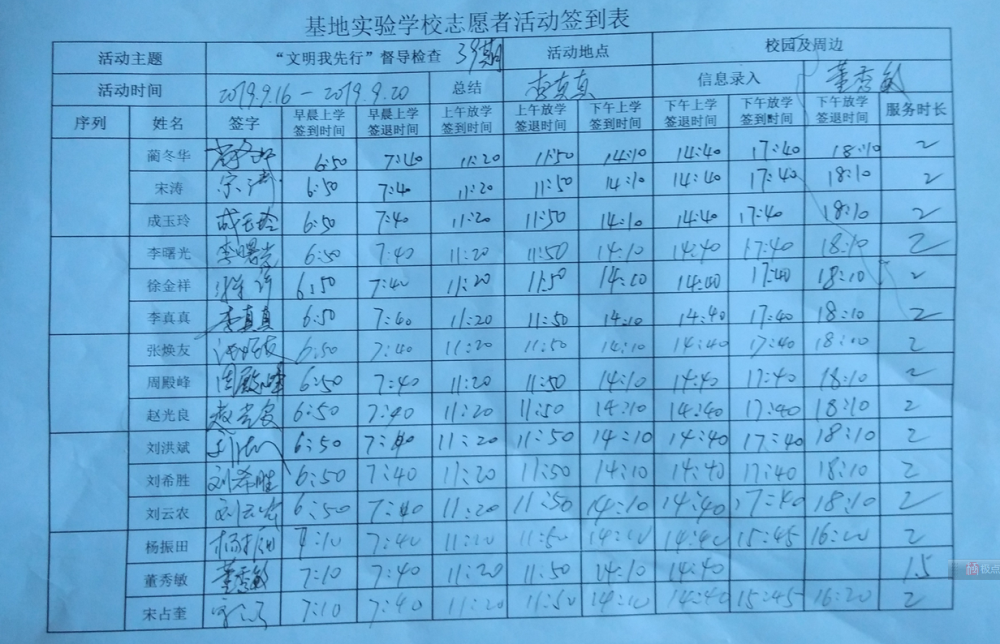 基地实验学校志愿者活动签到表
活动主题 “文明我先行”督导检查 39期 活动地点 校园及周边
活动时间 2019.9.16-2019.9.20 总结 李真真 信息录入 董秀敏
序列 姓名 签字 早晨上学签到时间 早晨上学签退时间 上午放学签到时间 上午放学签退时间 下午上学签到时间 下午上学签退时间 下午放学签到时间 下午放学签退时间 服务时长
蔺冬华 6:50 7:40 11:20 11:50 14:10 14:40 17:40 18:10 2
宋涛 宋涛 6:50 7:40 11:20 11:50 14:10 14:40 17:40 18:10 2
成玉玲 成玉玲 6:50 7:40 11:20 11:50 14:10 14:40 17:40 18:10 2
李曙光 李曙光 6:50 7:40 11:20 11:50 14:10 14:40 17:40 18:10 2
徐金祥 6:50 7:40 11:20 11:50 14:10 14:40 17:40 18:10 2
李真真 李真真 6:50 7:40 11:20 11:50 14:10 14:40 17:40 18:10 2
张焕友 6:50 7:40 11:20 11:50 14:10 14:40 17:40 18:10 2
周殿峰 周殿峰 6:50 7:40 11:20 11:50 14:10 14:40 17:40 18:10 2
赵光良 赵光良 6:50 7:40 11:20 11:50 14:10 14:40 17:40 18:10 2
刘洪斌 6:50 7:40 11:20 11:50 14:10 14:40 17:40 18:10 2
刘希胜 刘希胜 6:50 7:40 11:20 11:50 14:10 14:40 17:40 18:10 2
刘云农 刘云农 6:50 7:40 11:20 11:50 14:10 14:40 17:40 18:10 2
杨振田 杨振田 7:10 7:40 11:20 11:50 14:10 14:40 15:45 16:20 2
董秀敏 董秀敏 7:10 7:40 11:20 11:50 14:10 14:40 1.5
宋占奎 7:10 7:40 11:20 11:50 14:10 14:40 15:45 16:20 2